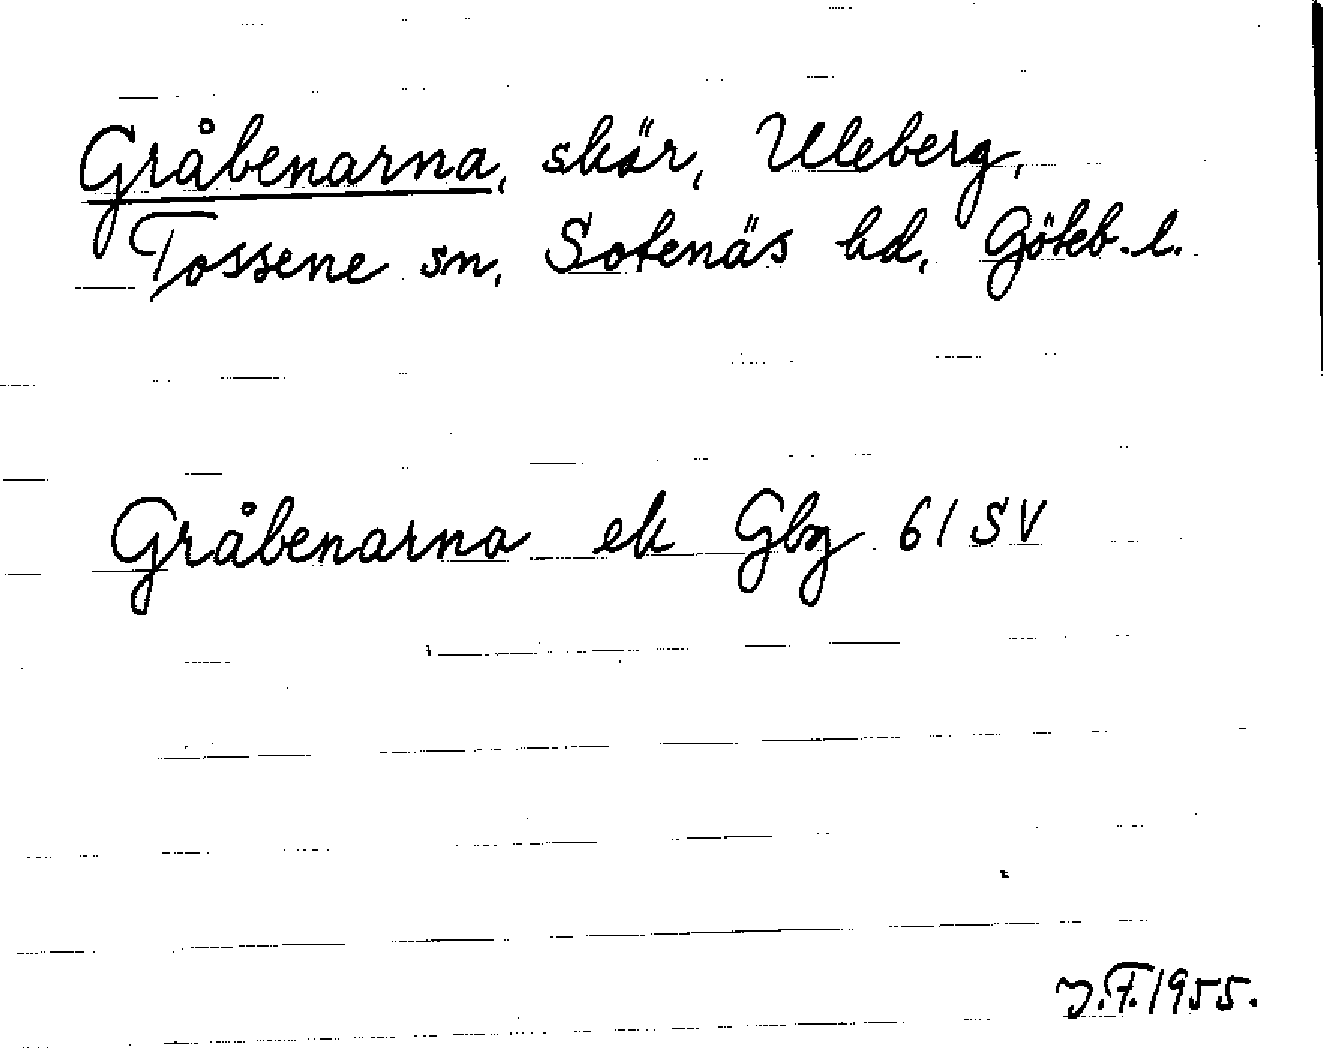 Gråbenarna, skär, Uleberg,
Tossene sn, Sotenäs hd, Göteb. l.
Gråbenarna ek Gbg 61 SV
J.F. 1955.